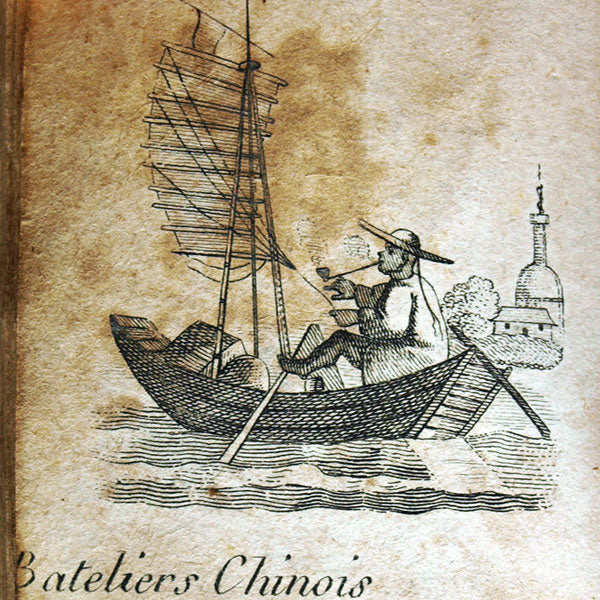 Bateliers Chinois